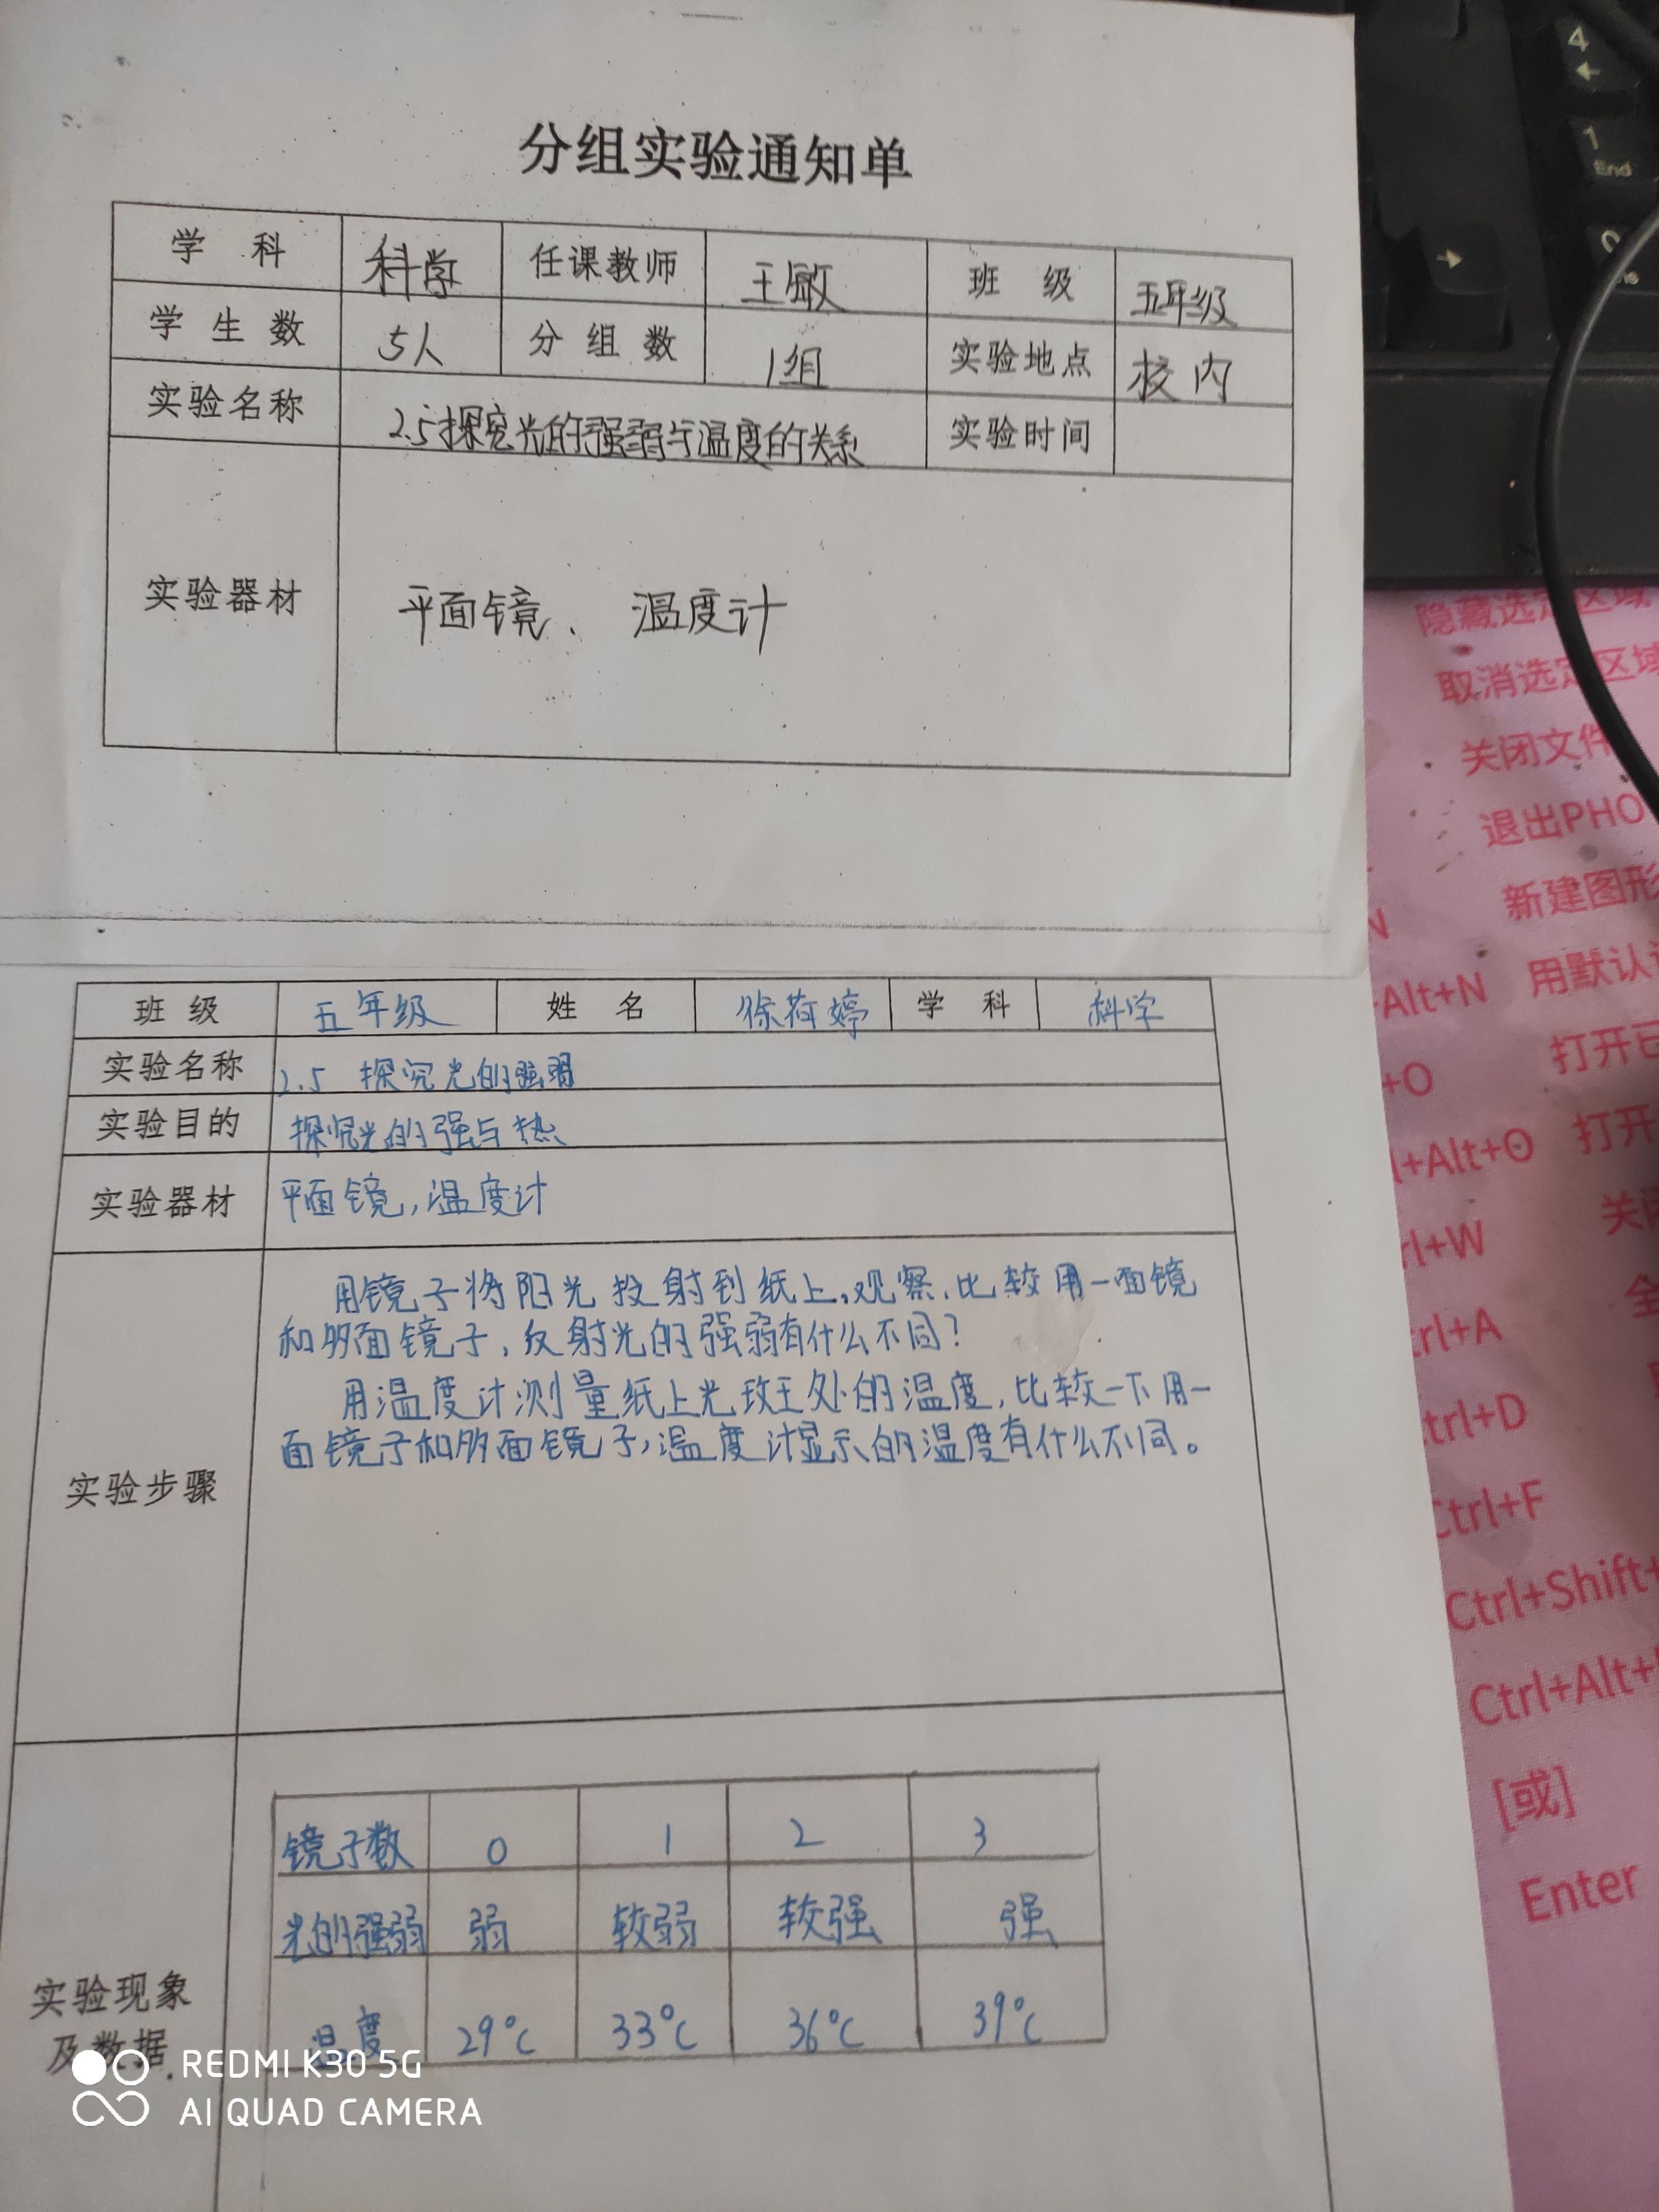 分组实验通知单
学 科 科学 任课教师 王敏 班 级 五年级
学 生 数 5人 分 组 数 1组 实验地点 校内
实验名称 2.5探究光的强弱与温度的关系 实验时间
实验器材 平面镜、 温度计
班 级 五年级 姓 名 徐荷婷 学 科 科学
实验名称 2.5 探究光的强弱
实验目的 探究光的强与热
实验器材 平面镜,温度计
实验步骤
用镜子将阳光投射到纸上,观察、比较用一面镜
和多面镜子,反射光的强弱有什么不同?
用温度计测量纸上光斑处的温度,比较一下用一
面镜子和多面镜子,温度计显示的温度有什么不同。
实验现象
及数据
镜子数 0 1 2 3
光的强弱 弱 较弱 较强 强
温度 29℃ 33℃ 36℃ 39℃
REDMI K30 5G
AI QUAD CAMERA
4
1
End
0
隐藏选定区域
取消选定区域
关闭文件
退出PHO
新建图形
N
Alt+N 用默认
+O 打开已
l+Alt+O 打开
rl+W 关闭
trl+A 全
trl+D
Ctrl+F
Ctrl+Shift+
Ctrl+Alt+
[或]
Enter